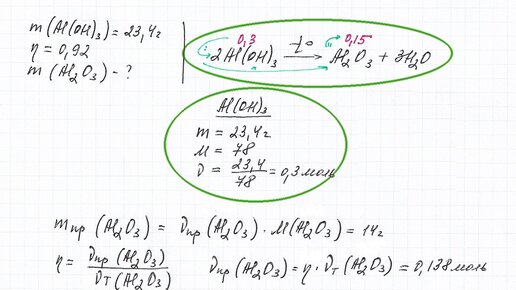 m (Al(OH)₃) = 23,4г
η = 0,92
m (Al₂O₃) - ?
0,3 0,15
2Al(OH)₃ —t°→ Al₂O₃ + 3H₂O
Al(OH)₃
m = 23,4г
M = 78
ν = 23,4/78 = 0,3 моль
mпр (Al₂O₃) = νпр (Al₂O₃) · M(Al₂O₃) = 14г
η = νпр (Al₂O₃)/νт (Al₂O₃) νпр (Al₂O₃) = η · νт (Al₂O₃) = 0,138 моль